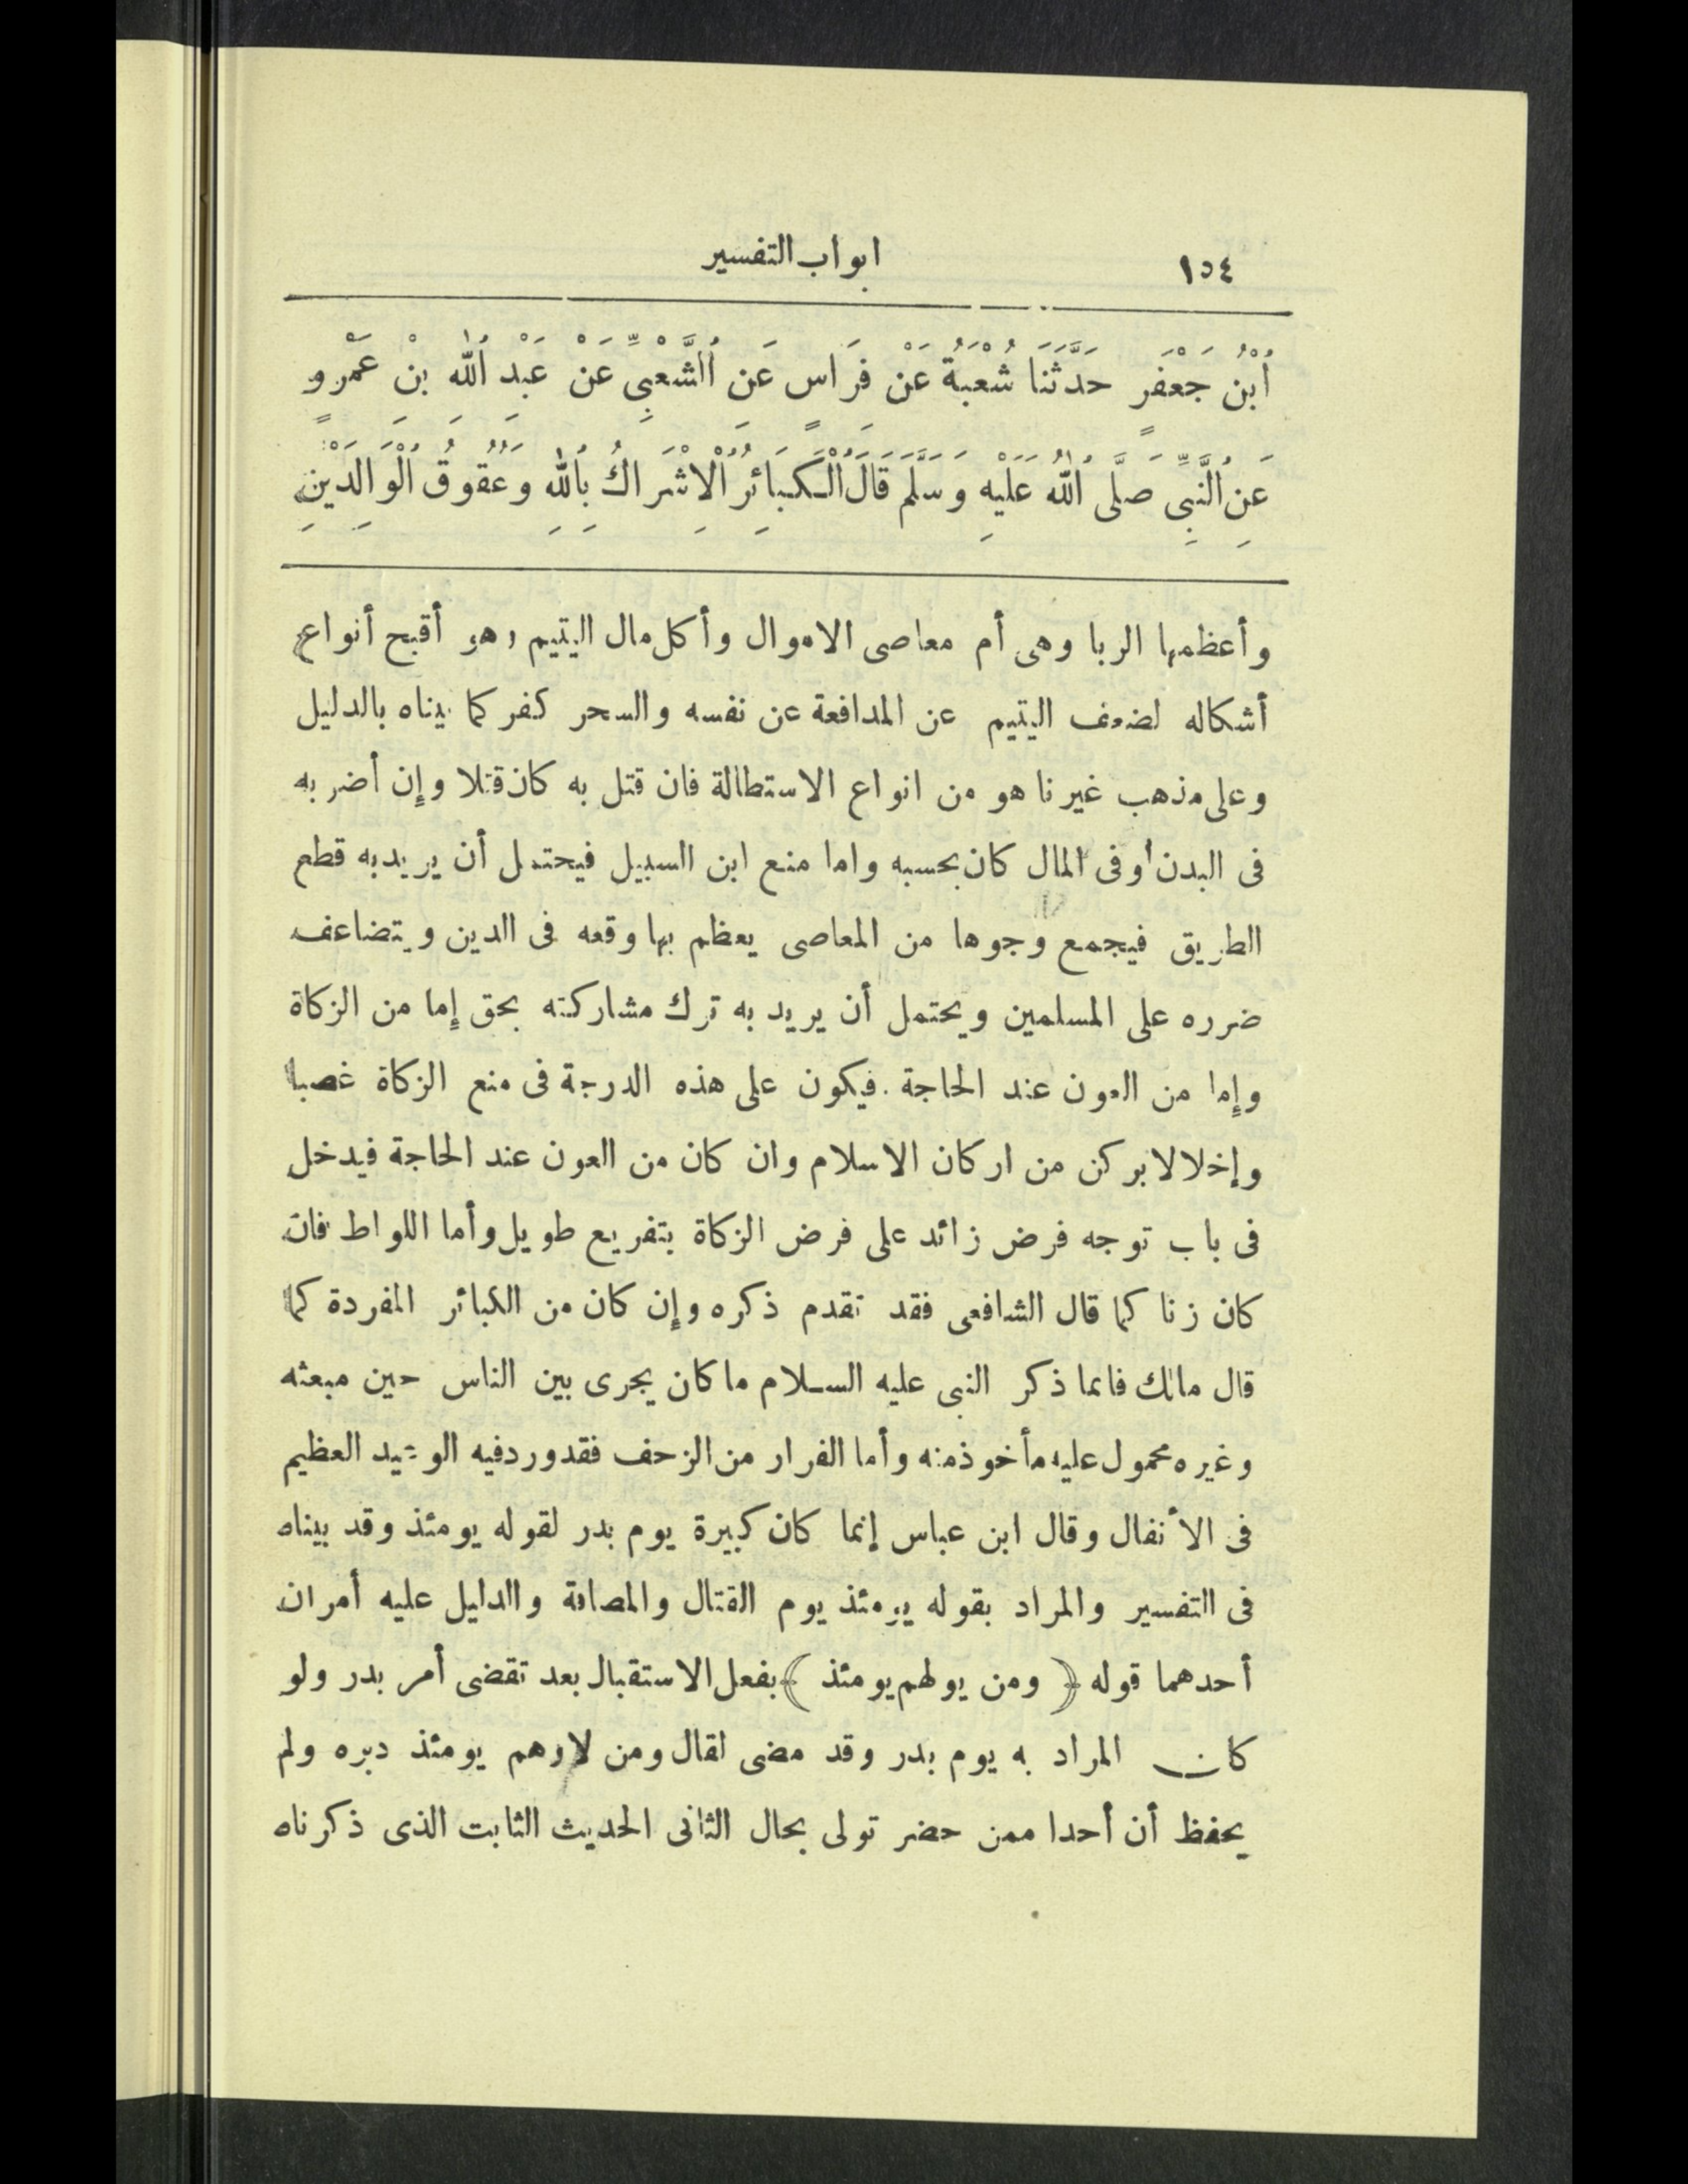 ١٥٤ ابواب التفسير
ٱبْنُ جَعْفَرٍ حَدَّثَنَا شُعْبَةُ عَنْ فِرَاسٍ عَنِ ٱلشَّعْبِيِّ عَنْ عَبْدِ ٱللهِ بْنِ عَمْرٍو
عَنِ ٱلنَّبِيِّ صَلَّى ٱللهُ عَلَيْهِ وَسَلَّمَ قَالَ ٱلْكَبَائِرُ ٱلْاِشْرَاكُ بِٱللهِ وَعُقُوقُ ٱلْوَالِدَيْنِ
وأعظمها الربا وهى أم معاصى الاموال وأكل مال اليتيم وهو أقبح أنواع
أشكاله لضعف اليتيم عن المدافعة عن نفسه والسحر كفر كما بيناه بالدليل
وعلى مذهب غيرنا هو من انواع الاستطالة فان قتل به كان قتلا وإن أضر به
فى البدن أوفى المال كان بحسبه واما منع ابن السبيل فيحتمل أن يريد به قطع
الطريق فيجمع وجوها من المعاصى يعظم بها وقعه فى الدين ويتضاعف
ضرره على المسلمين ويحتمل أن يريد به ترك مشاركته بحق إما من الزكاة
وإما من العون عند الحاجة . فيكون على هذه الدرجة فى منع الزكاة غصبا
وإخلالا بركن من اركان الاسلام وان كان من العون عند الحاجة فيدخل
فى باب توجه فرض زائد على فرض الزكاة بتفريع طويل وأما اللواط فان
كان زنا كما قال الشافعى فقد تقدم ذكره وإن كان من الكبائر المفردة كما
قال مالك فانما ذكر النبى عليه السلام ما كان يجرى بين الناس حين مبعثه
وغيره محمول عليه مأخوذ منه وأما الفرار من الزحف فقد ورد فيه الوعيد العظيم
فى الأنفال وقال ابن عباس إنما كان كبيرة يوم بدر لقوله يومئذ وقد بيناه
فى التفسير والمراد بقوله يومئذ يوم القتال والمصافة والدليل عليه أمران
أحدهما قوله ﴿ ومن يولهم يومئذ ﴾ بفعل الاستقبال بعد تقضى أمر بدر ولو
كان المراد به يوم بدر وقد مضى لقال ومن لارهم يومئذ دبره ولم
يحفظ أن أحدا ممن حضر تولى بحال الثانى الحديث الثابت الذى ذكرناه